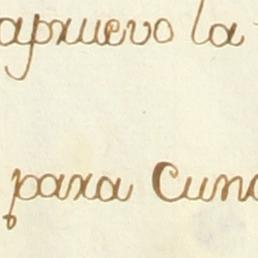 apruevo la
para Cun